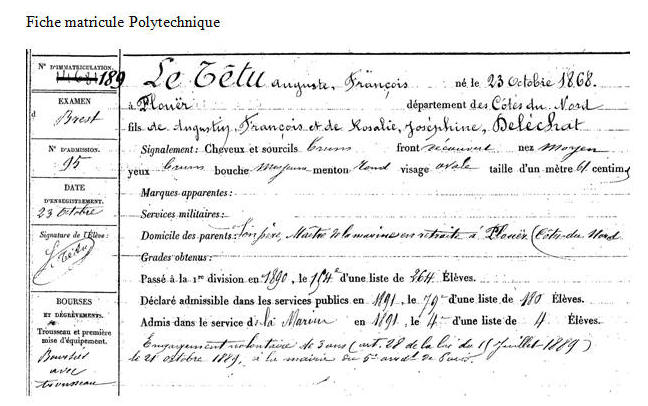 Fiche matricule Polytechnique
N° D'IMMATRICULATION.
189
EXAMEN
d Brest
N° D'ADMISSION.
95
DATE
D'ENREGISTREMENT.
23 octobre
Signature de l'Élève:
Le Têtu
BOURSES
ET DÉGRÈVEMENTS.
Trousseau et première
mise d'équipement.
Boursier
avec
trousseau
Le Têtu Auguste, François né le 23 Octobre 1868.
à Plouër département des Côtes du Nord
fils de Augustin, François et de Rosalie, Joséphine, Deléchat
Signalement: Cheveux et sourcils bruns front découvert nez moyen
yeux bruns bouche moyenne menton rond visage ovale taille d'un mètre 61 centim
Marques apparentes:
Services militaires:
Domicile des parents: Son père, Maître de la marine en retraite à Plouër (Côtes-du-Nord
Grades obtenus:
Passé à la 1re division en 1890, le 154e d'une liste de 264 Élèves.
Déclaré admissible dans les services publics en 1891, le 79e d'une liste de Élèves.
Admis dans le service de la Marine en 1891, le 4e d'une liste de 4 Élèves.
Engagement volontaire de 3 ans (art. 28 de la loi du 15 Juillet 1889)
le 21 octobre 1889, à la mairie du 5e arrdt de Paris.